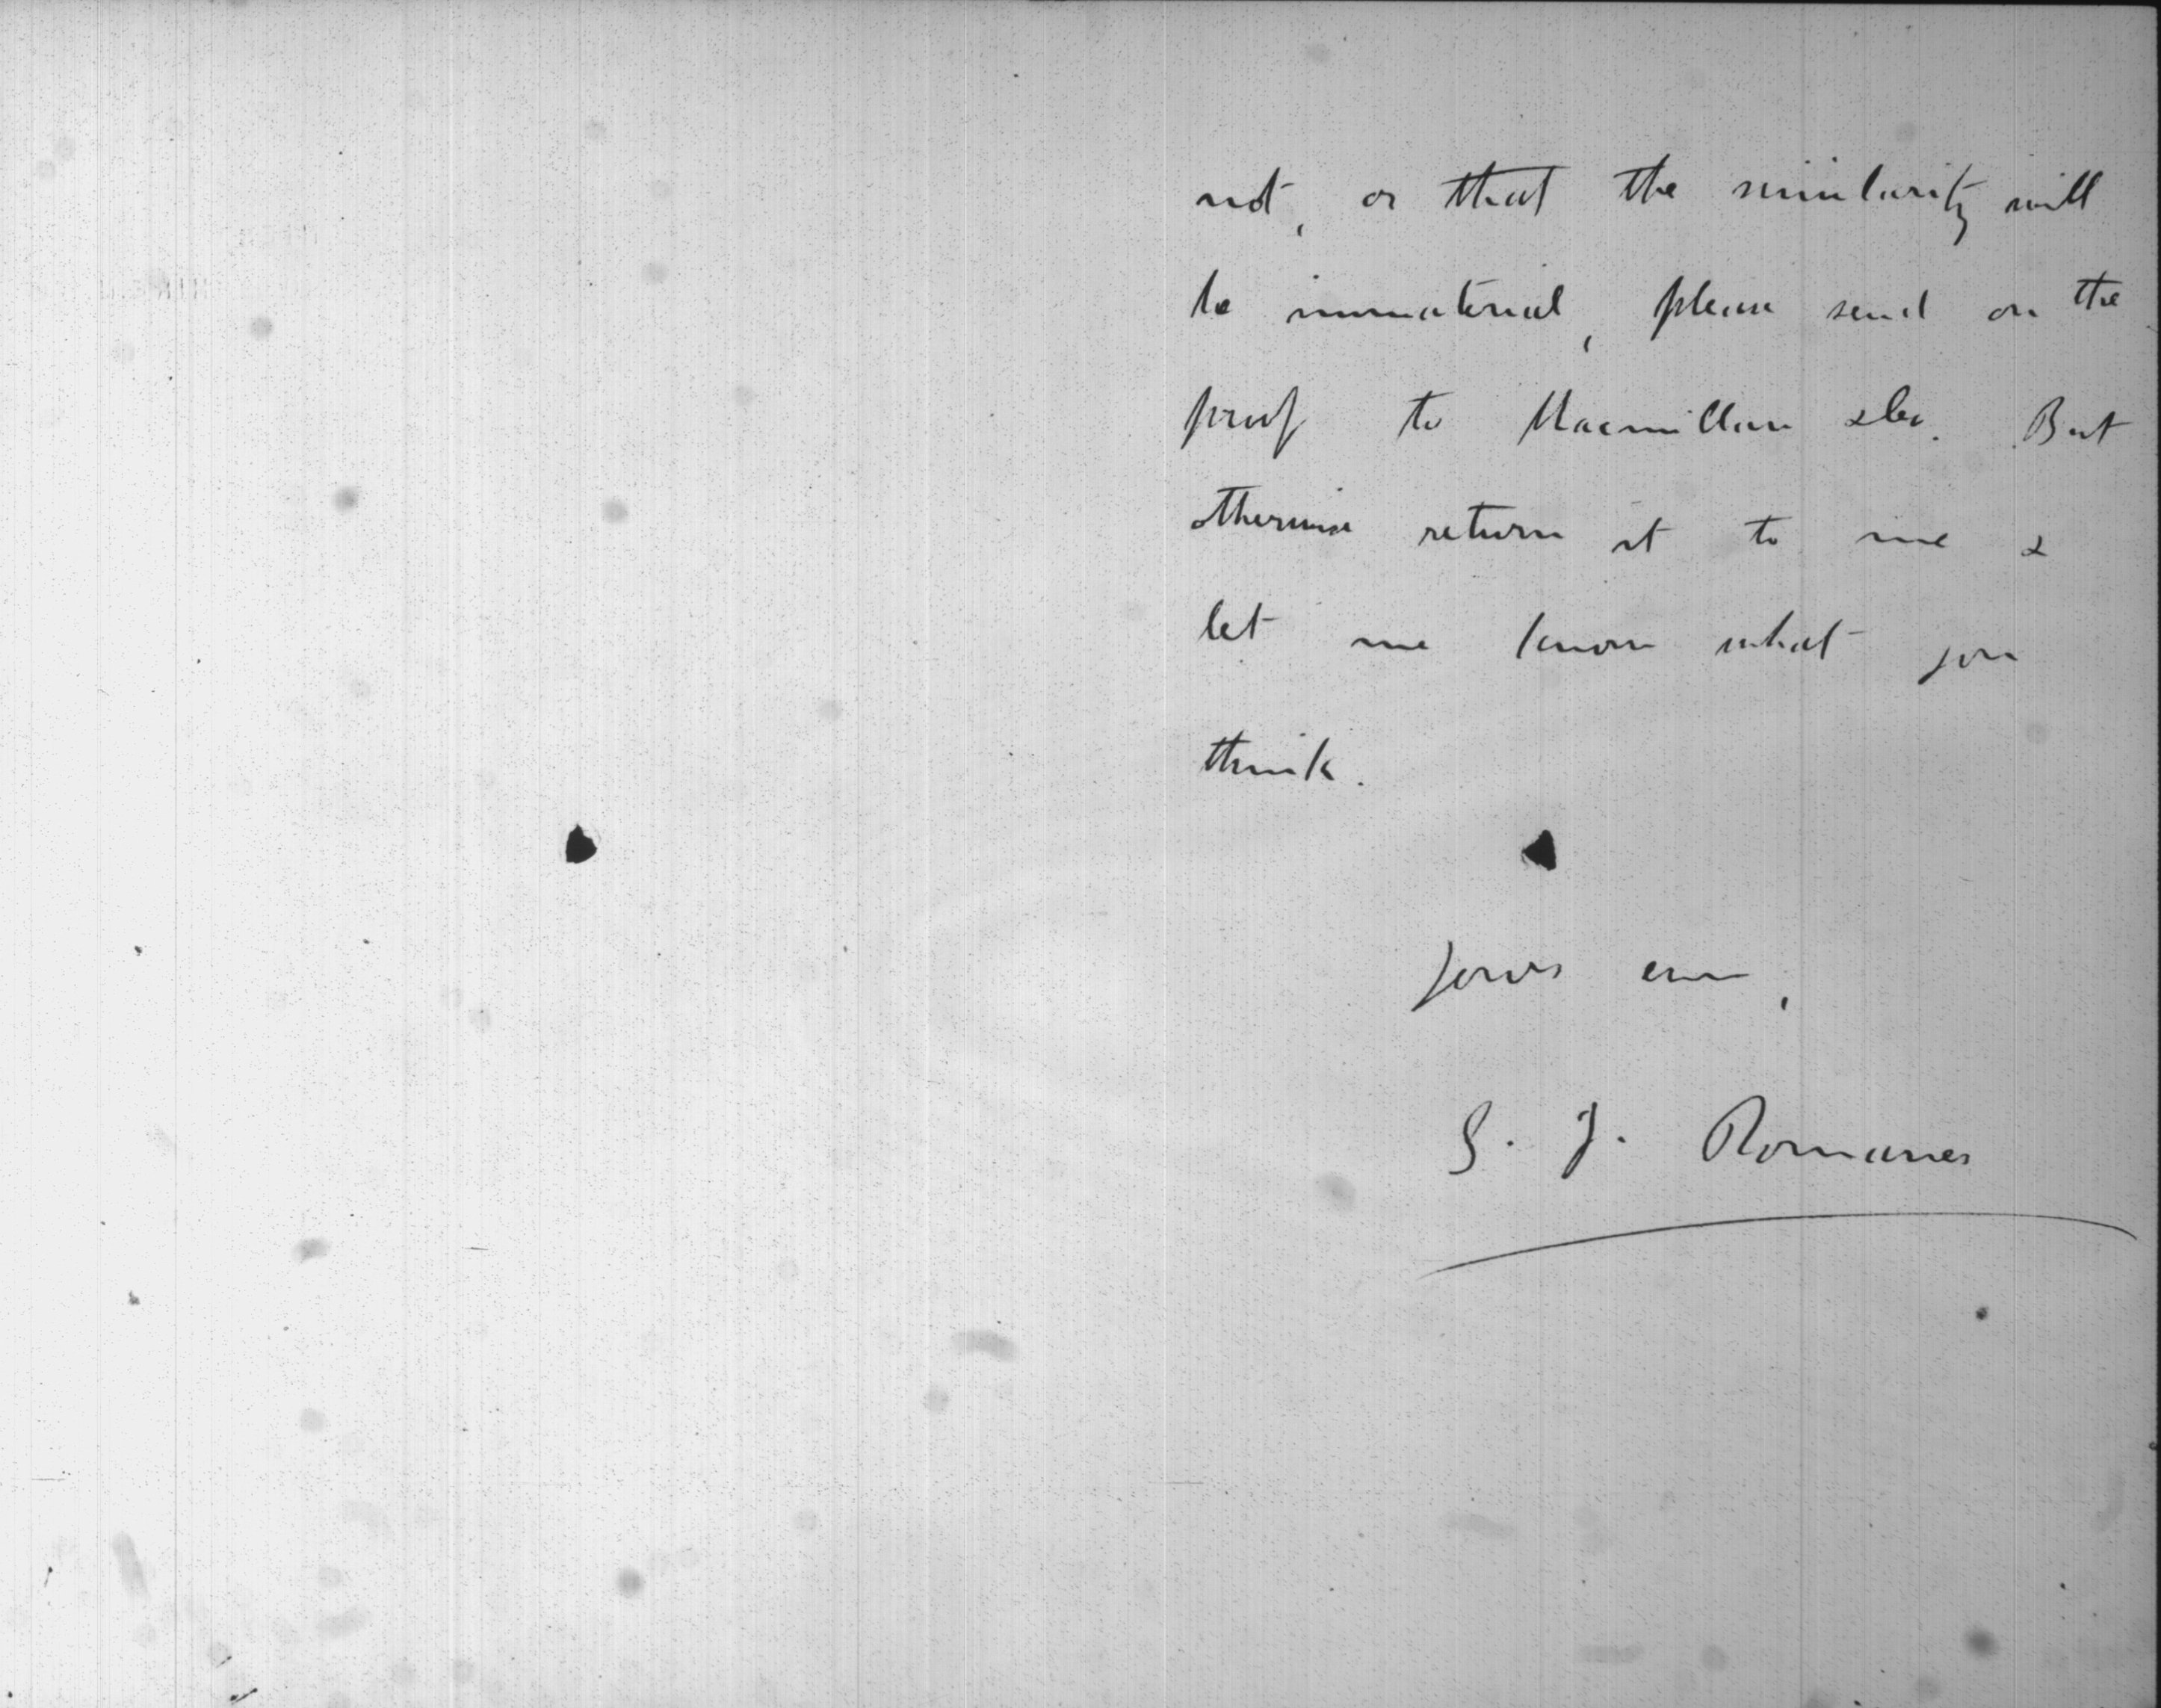 not, or that the similarity will
be immaterial, please send on the
proof to Macmillan &Co. But
otherwise return it to me &
let me know what you
think.
Yours ever,
G. J. Romanes